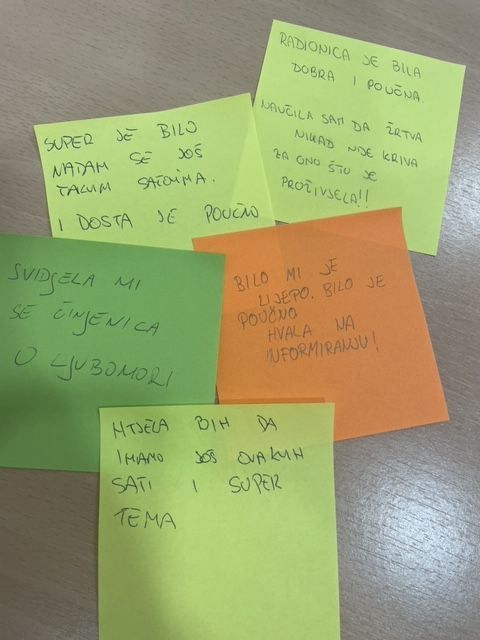 RADIONICA JE BILA
DOBRA I POUČNA.
NAUČILA SAM DA ŽRTVA
NIKAD NIJE KRIVA
ZA ONO ŠTO JE
PROŽIVJELA!!
SUPER JE BILO
NADAM SE JOŠ
TAKVIM SATOVIMA.
I DOSTA JE POUČNO
SVIDJELA MI
SE ČINJENICA
O LJUBOMORI
BILO MI JE
LIJEPO. BILO JE
POUČNO
HVALA NA
INFORMIRANJU!
HTJELA BIH DA
IMAMO JOŠ OVAKVIH
SATI I SUPER
TEMA